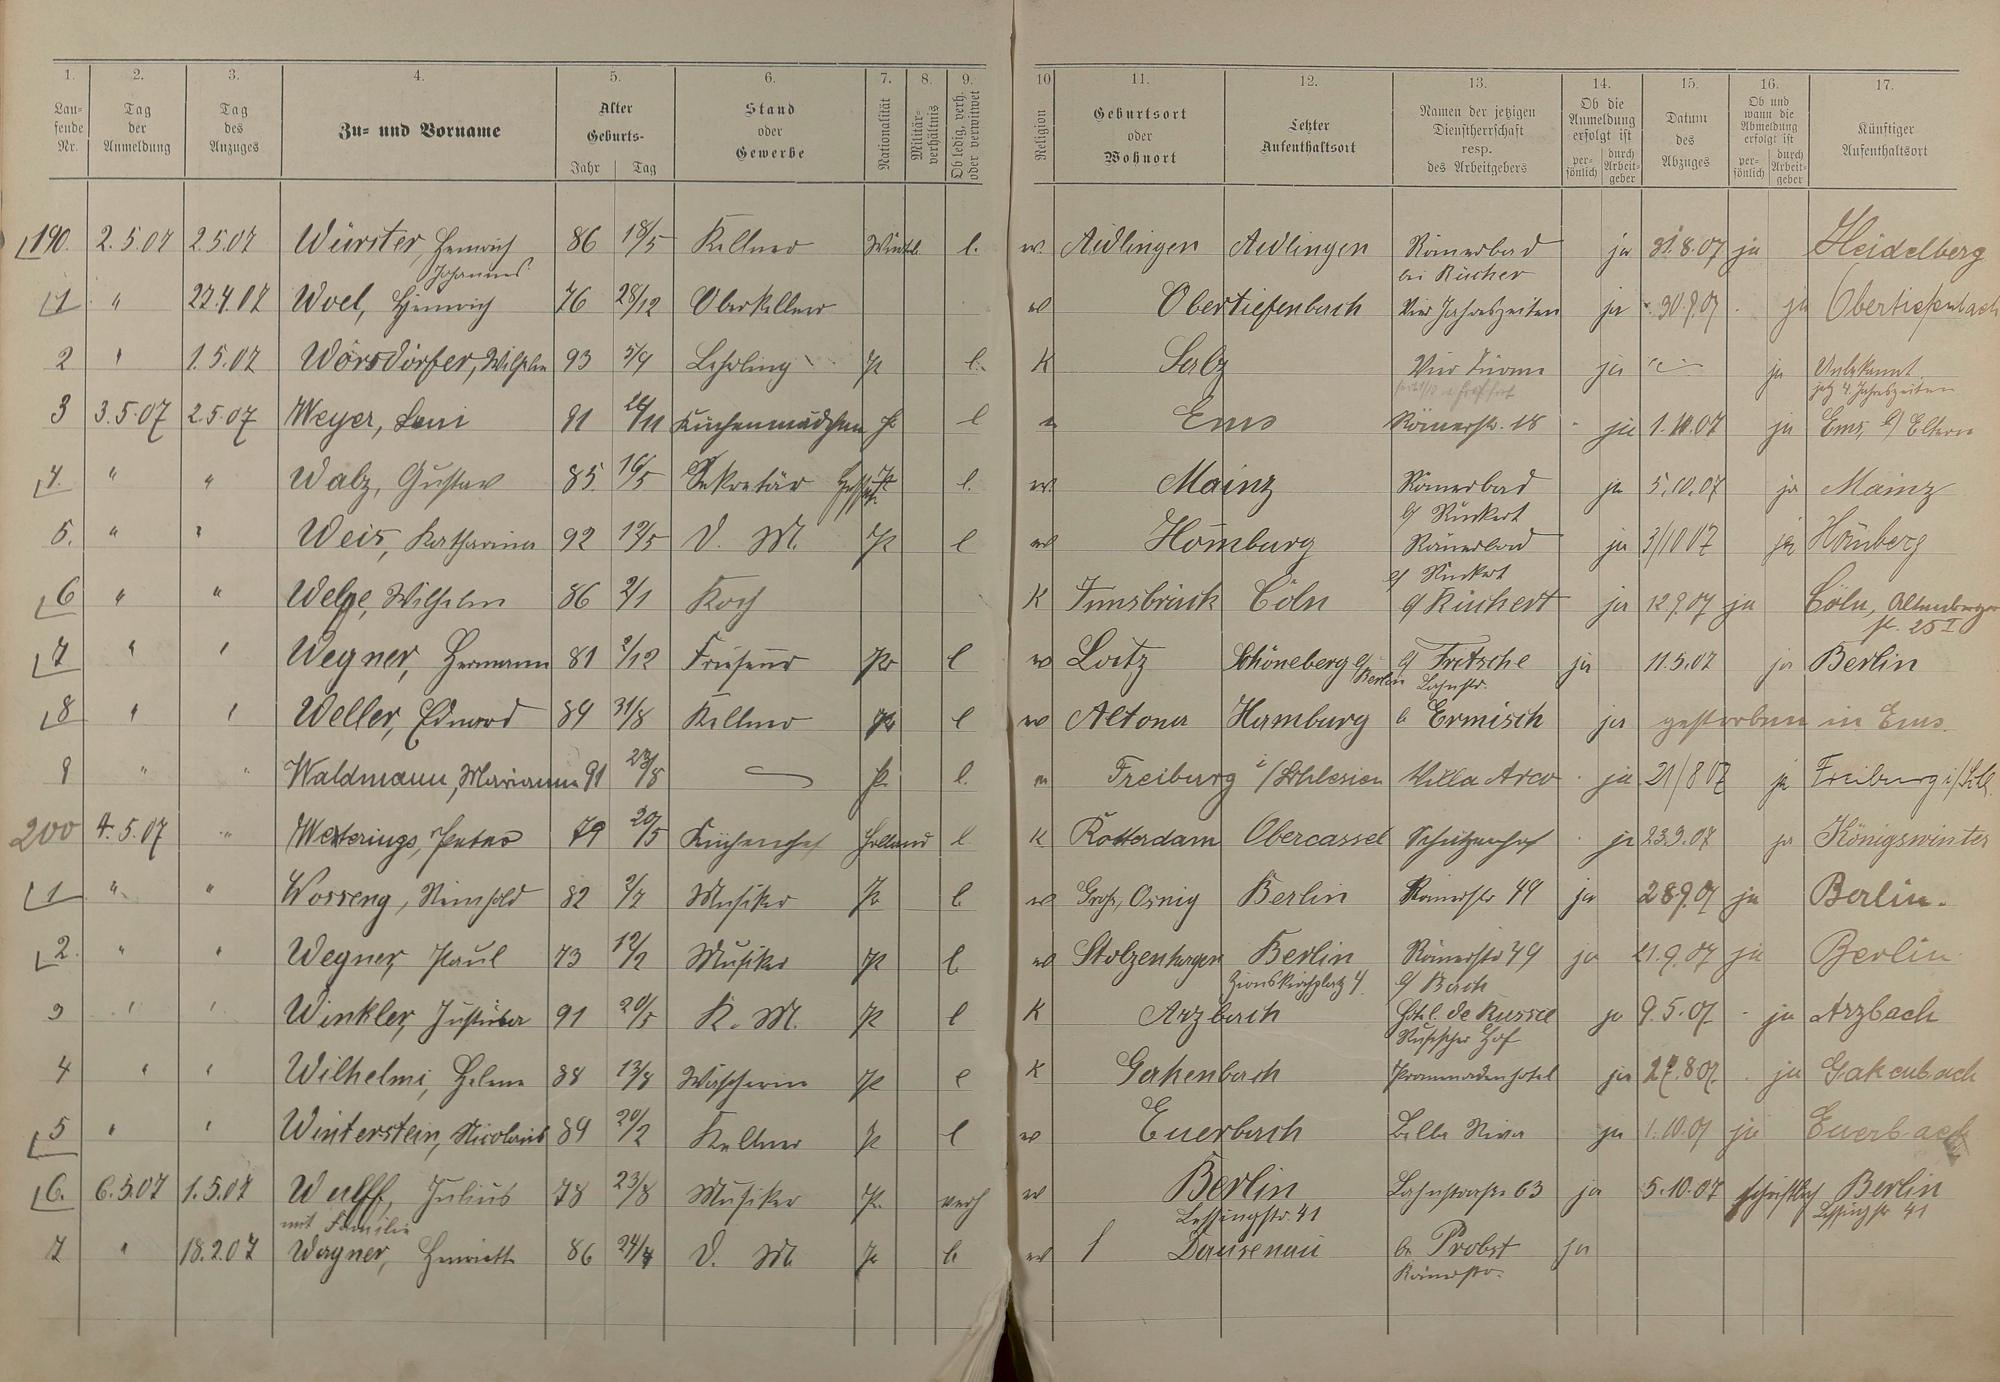 1. 2. 3. 4. 5. 6. 7. 8. 9. 10 11. 12. 13. 14. 15. 16. 17.
Lau-fende Nr. Tag der Anmeldung Tag des Anzuges Zu- und Vorname Alter Geburts- Jahr Tag Stand oder Gewerbe Nationalität Militär-verhältnis Ob ledig, verh. oder verwitwet Religion Geburtsort oder Wohnort Letzter Aufenthaltsort Namen der jetzigen Dienstherrschaft resp. des Arbeitgebers Ob die Anmeldung erfolgt ist per-sönlich durch Arbeit-geber Datum des Abzuges Ob und wann die Abmeldung erfolgt ist per-sönlich durch Arbeit-geber Künftiger Aufenthaltsort
190. 2.5.07 2.5.07 Würster, Heinrich 86 18/5 Kellner l. w. Aidlingen Aidlingen Römerbad ja 31.8.07 ja Heidelberg
Johannes bei Rücker
1 " 22.4.07 Woel, Heinrich 76 28/12 Oberkellner w Obertiefenbach Vier Jahreszeiten ja 30.9.07 ja Obertiefenbach
2 " 1.5.07 Wörsdörfer, Wilhelm 93 5/9 Lehrling Pr l. K Salz Vier Türme ja ja Unbekannt
jetz 4. Jahreszeiten
3 3.5.07 2.5.07 Weyer, Leni 91 Küchenmädchen Pr l Ems Römerstr. 18 ja 1.10.07 ja Ems, b/ Eltern
4. " " Walz, Gustav 85. 16/5 Sekretär l. w. Mainz Römerbad ja 5.10.07 ja Mainz
b/ Rückert
5. " " Weis, Katharina 92 D. M. Pr l w Homburg Römerbad ja 3/10 07 ja
b/ Rückert
6 " " Wilhelm 86 2/1 Koch K Innsbruck Cöln b/ Rückert ja 12.9.07 ja Cöln, Altenberger
str. 25 I
7 " " Wegner, Hermann 81 2/12 Friseur Pr l w Loitz Schöneberg b/ Berlin b/ Fritsche ja 11.5.07 ja Berlin
Lahnstr.
8 " " Weller, Eduard 89 31/8 Kellner Pr l w Altona Hamburg b Ermisch ja gestorben in Ems.
9 " " Waldmann, Marianna 91 23/8 Pr l. Freiburg i/Schlesien Villa Arco ja 21/8 07 ja Freiburg i/Schl.
200 4.5.07 " Westerings, Peter 79 20/5 Küchenchef Holland l K Rotterdam Obercassel Schützenhof ja 23.9.07 ja Königswinter
1 " " Worreng, Reinhold 82 2/7 Musiker Pr l. w Groß, Osnig Berlin Römerstr 49 ja 28.9.07 ja Berlin.
2. " " Wegner, Paul 73 12/2 Musiker Pr l. w Stolzenhagen Berlin Römerstr 49 ja 21.9.07 ja Berlin
Zionskirchplatz 4. b/ Bach
3 " " Winkler, 91 20/5 K. M. Pr l K Arzbach Hôtel de Russie ja 9.5.07 ja Arzbach
Russischer Hof
4 " " Wilhelmi, Helene 88 13/8 Wäscherin Pr l K Gakenbach Promenadenhotel ja 27.8.07. ja Gakenbach
5 " " Winterstein, Nicolaus 89 20/2 Kellner Pr l w Euerbach Bella Riva ja 1.10.07 ja Euerbach
6. 6.5.07 1.5.07 Wulff, Julius 78 23/8 Musiker Pr. verh w Berlin Lahnstraße 63 ja 5.10.07 schriftlich Berlin
mit Familie Lessingstr. 41 Lessingstr 41
7 " 18.2.07 Wagner, Henriette 86 24/4 D. M. Pr l. w Dausenau bei Probst ja
Römerstr.